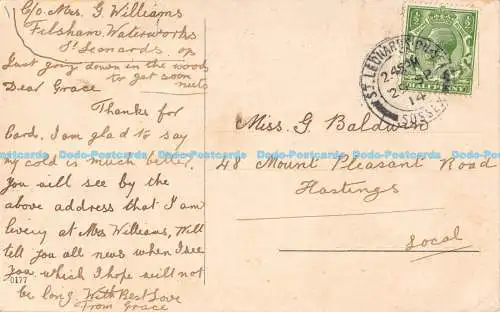 C/o Mrs. G. Williams
Filsham Waterworks
St Leonards
Just going down in the woods
to get some
nuts
Dear Grace
Thanks for
Card, I am glad to say
my cold is much better,
You will see by the
above address that I am
living at Mrs Williams, Will
tell you all news when I see
you which I hope will not
be long. With Best Love
From Grace
0177
Miss. G. Baldwin
48 Mount Pleasant Road
Hastings
Local
ST LEONARDS
SUSSEX
14
HALFPENNY
Dodo-Postcards Dodo-Postcards Dodo-Postcards Dodo-Postcards Dodo-Postcards